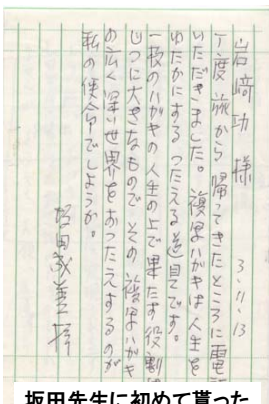 岩崎功 様
3.11.13
丁度 旅から 帰ってきたところに電話
いただきました。復はハガキは人生を
ゆたかにする つたえる 道具です。
一枚のハガキの人生の上で果たす役割は
じつに大きなもので その 復はハガキ
の広く深い世界をおつたえするのが
私の使命でしょうか。
坂田 拝
坂田先生に初めて貰った